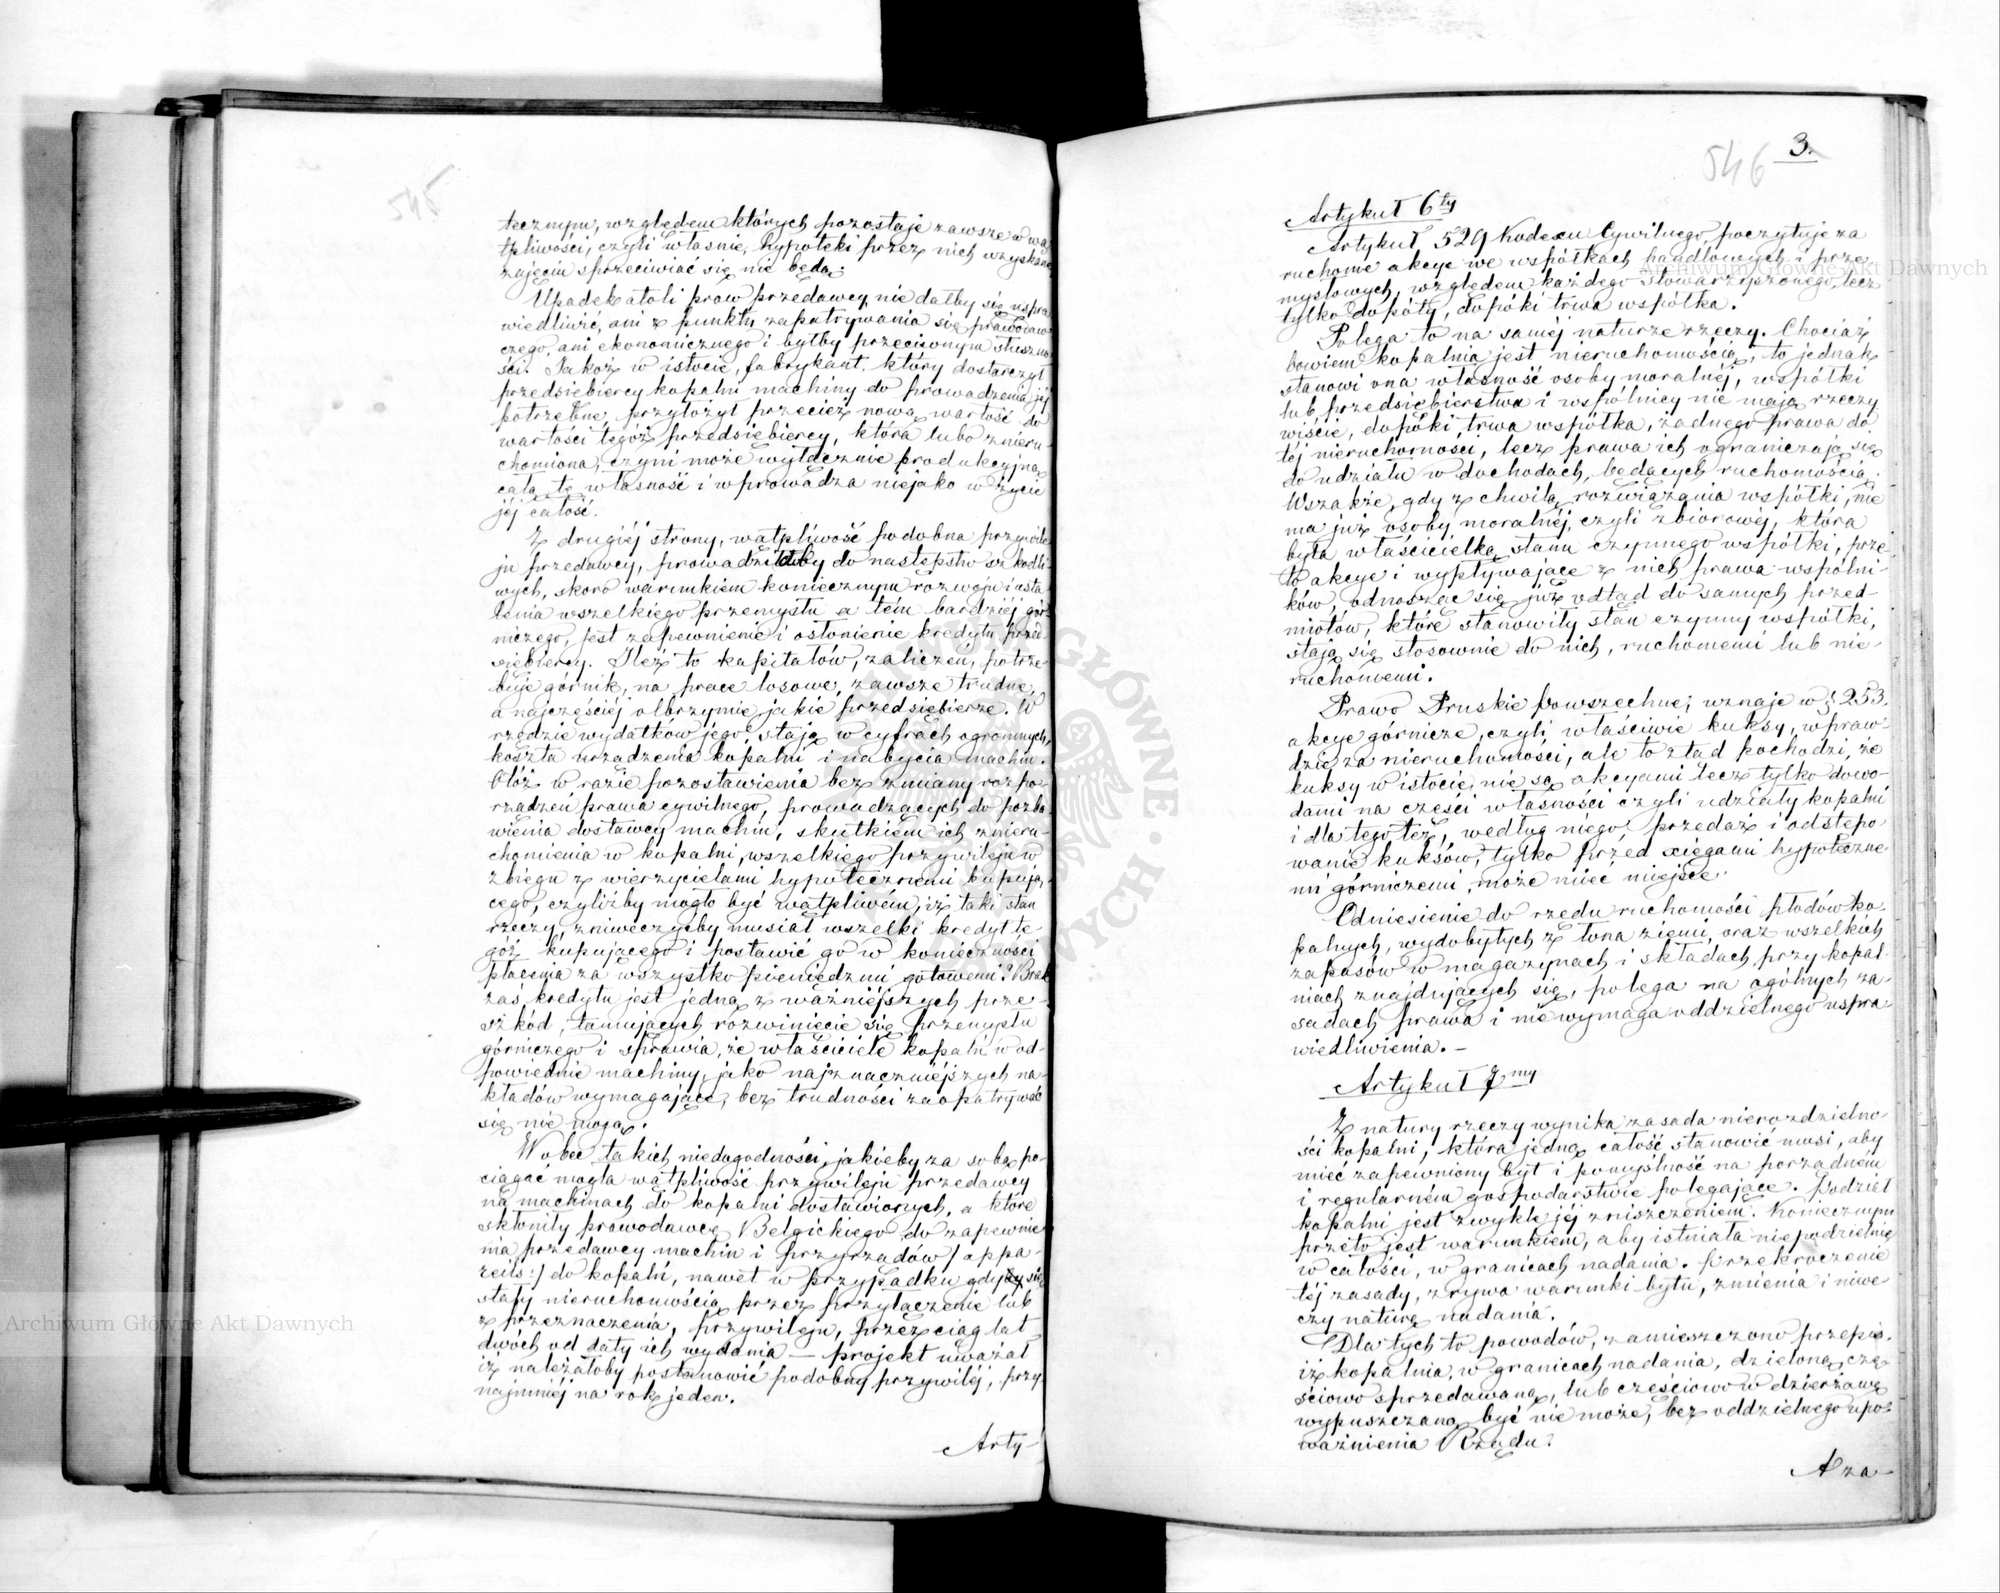 545
tecznym, względem których pozostaje zawsze w wą
tpliwości, czyli własnie, hypoteki przez nich uzyskane
zajęciu sprzeciwiać się nie będą.
Upadek atoli praw przedawcy, nie dałby się uspra
wiedliwić, ani z punktu zapatrywania się prawodaw
czego, ani ekonomicznego i byłby przeciwnym słuszno
ści. Jakoż w istocie, fabrykant, który dostarczył
przedsiębiercy kopalni machiny do prowadzenia jéj
potrzebne, przyłożył przecież nową wartość do
wartości tegóż przedsiębiercy, która lubo znieru
chomiona, czyni może wyłącznie produkcyjną
całą tę własność i wprowadza niejako w życie
jéj całość.
Z drugiéj strony, wątpliwość podobna przywile
ju przedawcy, prowadziłaby do następstw szkodli
wych, skoro warunkiem koniecznym rozwoju i usta
lenia wszelkiego przemysłu a tém bardziéj gór
niczego, jest zapewnienie i osłonienie kredytu przed
siębiercy. Ileż to kapitałów, zaliczeń, potrze
buje górnik, na prace losowe, zawsze trudne,
a najczęściéj olbrzymie jakie przedsiębierze. W
rzędzie wydatków jego, stają w cyfrach ogromnych,
koszta urządzenia kopalni i nabycia machin.
Otóż w razie pozostawienia bez zmiany rozpo
rządzeń prawa cywilnego, prowadzących do pozba
wienia dostawcy machin, skutkiem ich znieru
chomienia w kopalni, wszelkiego przywileju w
zbiegu z wierzycielami hypotecznemi kupują
cego, czyliżby mogło być wątpliwém, iż taki stan
rzeczy, zniweczyćby musiał wszelki kredyt te
góż kupującego i postawić go w konieczności
płacenia za wszystko pieniędzmi gotowemi? Brak
zaś kredytu jest jedną z ważniéjszych prze-
szkód, tamujących rozwinięcie się przemysłu
górniczego i sprawia, że właściciele kopalń w od-
powiednie machiny, jako najznaczniéjszych na-
kładów wymagające, bez trudności zaopatrywać
się nie mogą.
Wobec takich niedogodności, jakieby za sobą po-
ciągać mogła wątpliwość przywileju przedawcy
na machinach do kopalni dostawionych, a które
skłoniły prawodawcę Belgickiego do zapewnie
nia przedawcy machin i przyrządów /appa-
reils:/ do kopalń, nawet w przypadku gdyby się
stały nieruchomością przez przyłączenie lub
z przeznaczenia, przywileju, przez ciąg lat
dwóch od daty ich wydania — projekt uważał
iż należałoby postanowić podobny przywiléj, przy
najmniéj na rok jeden.
Arty-
546 3.
Artykuł 6ty
Artykuł 529 Kodexu Cywilnego, poczytuje za
ruchome akcye we wspólkach handlowych i prze
mysłowych, względem każdego stowarzyszonego, lecz
tylko dopóty, dopóki trwa wspólka.
Polega to na saméj naturze rzeczy. Chociaż
bowiem kopalnia jest nieruchomością, to jednak
stanowi ona własność osoby moralnéj, wspólki
lub przedsiębierstwa i wspólnicy nie mają rzeczy
wiście, dopóki trwa wspólka, żadnego prawa do
téj nieruchomości, lecz prawa ich ograniczają się
do udziału w dochodach, będących ruchomością.
Wszakże, gdy z chwilą rozwiązania wspólki, nie
ma już osoby moralnéj, czyli zbiorowéj, która
była właścicielką stanu czynnego wspólki, prze
to akcye i wypływające z nich prawa wspólni-
ków, odnosząc się już odtąd do samych przed-
miotów, które stanowiły stan czynny wspólki,
stają się stosownie do nich, ruchomemi lub nie-
ruchomemi.
Prawo Pruskie powszechne, uznaje w § 253.
akcye górnicze, czyli właściwie kuksy, wpraw
dzie za nieruchomości, ale to ztąd pochodzi, że
kuksy w istocie nie są akcyami lecz tylko dowo-
dami na części własności czyli udziały kopalni
i dla tego też, według niego, przedaż i odstępo
wanie kuksów, tylko przed xięgami hypoteczne
mi górniczemi, może mieć miejsce.
Odniesienie do rzędu ruchomości płodów ko-
palnych, wydobytych z łona ziemi, oraz wszelkich
zapasów w magazynach i składach przy kopal-
niach znajdujących się, polega na ogólnych za-
sadach prawa i nie wymaga oddzielnego uspra-
wiedliwienia. —
Artykuł 7my
Z natury rzeczy wynika zasada nierozdzielno-
ści kopalni, która jedną całość stanowić musi, aby
mieć zapewniony byt i pomyślność na porządném
i regularném gospodarstwie polegające. Podział
kopalni jest zwykle jéj zniszczeniem. Koniecznym
przeto jest warunkiem, aby istniała niepodzielnie
w całości, w granicach nadania. Przekroczenie
téj zasady, zrywa warunki bytu, zmienia i niwe-
czy naturę nadania.
Dla tych to powodów, zamieszczono przepis,
iż kopalnia, w granicach nadania, dzieloną, czę-
ściowo sprzedawaną, lub częściowo w dzierżawę
wypuszczaną być nie może, bez oddzielnego upo-
ważnienia Rządu.
A za-
Archiwum Główne Akt Dawnych
Archiwum Główne Akt Dawnych